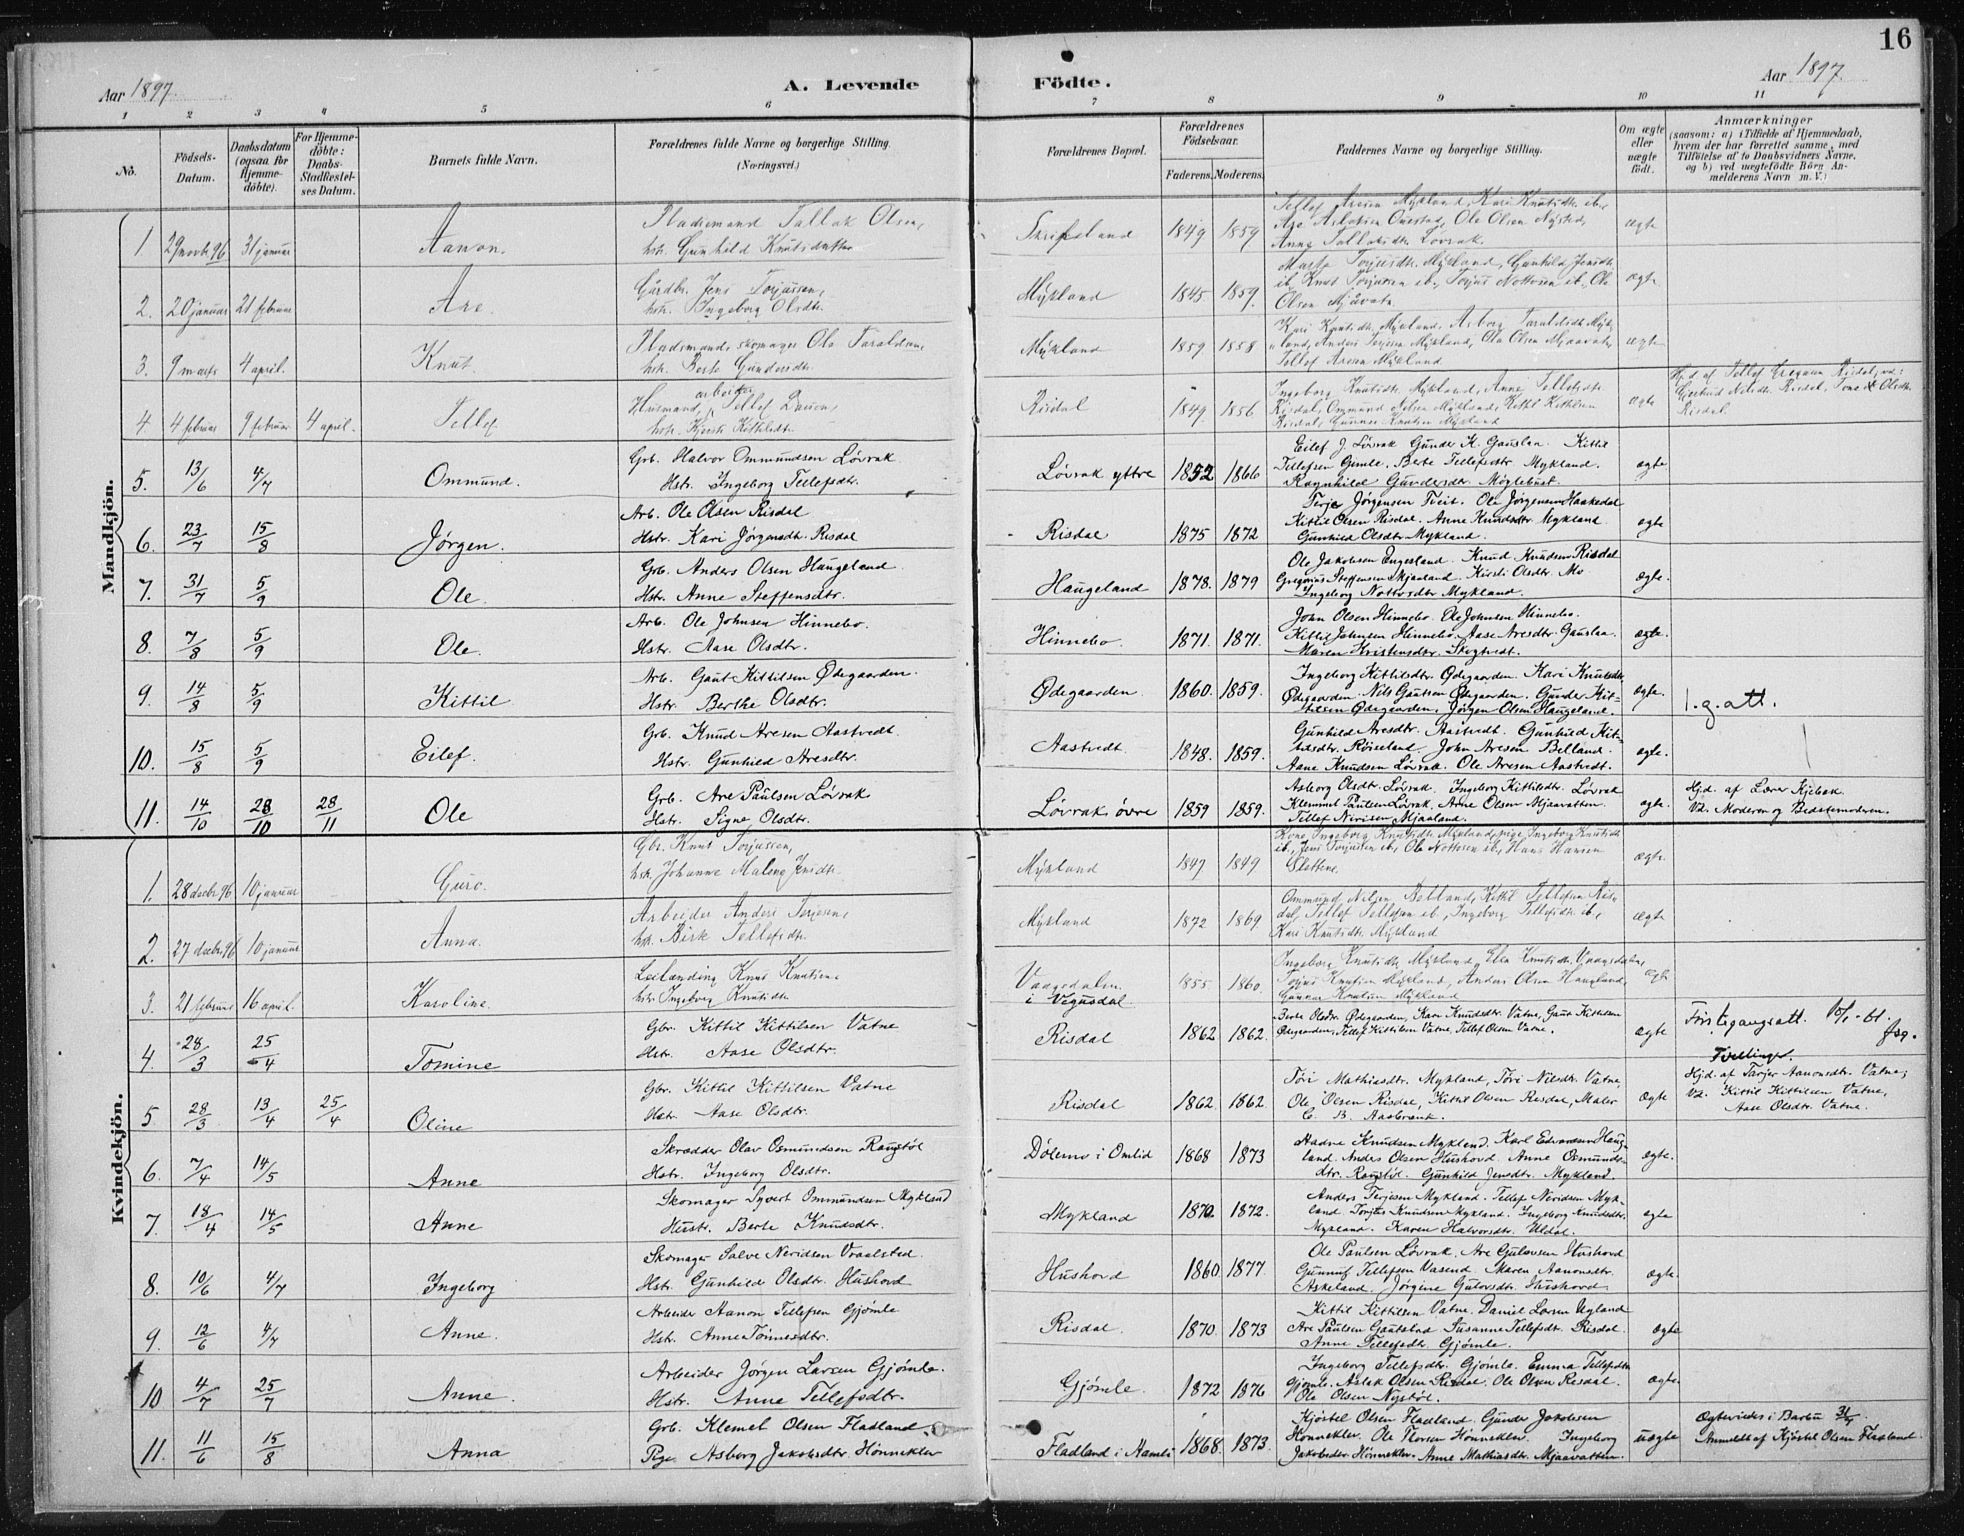 16
Aar 1897.
A. Levende Födte.
Aar 1897.
1 2 3 4 5 6 7 8 9 10 11
No.
Födsels-Datum.
Daabsdatum (ogsaa for Hjemmedöbte).
For Hjemmedöbte: Daabs-Stadfestelses Datum.
Barnets fulde Navn.
Forældrenes fulde Navne og borgerlige Stilling. (Næringsvei.)
Forældrenes Bopæl.
Forældrenes Födselsaar.
Faderens. Moderens.
Faddernes Navne og borgerlige Stilling.
Om ægte eller uægte födt.
Anmærkninger
(saasom: a) i Tilfælde af Hjemmedaab, hvem der har forrettet samme, med Tilföielse af to Daabsvidners Navne, og b) ved uægtefödte Börn Anmelderens Navn m. V.)
Mandkjön.
1. 29 novbr 96 31 januar Aanon. Pladsmand Tallak Olsen, hstr. Gunhild Knutsdatter Skripeland 1849 1859 Tellef Aresen Mykland, Kari Knutsdtr ib., Are Aslaksen Ousstad, Ole Olsen Nystøl, Anne Tallaksdtr Løvrak. ægte
2. 20 januar 21 februar Are. Gårdbr. Jens Torjussen, hstr. Ingeborg Olsdtr. Mykland 1845 1859. Marte Torjusdtr. Mykland, Gunhild Jensdtr. ib, Knut Torjussen ib., Torjus Nottosen ib., Ole Olsen Mjåvatn ægte
3. 9 marts 4 april. Knut. Pladsmand, skomager Ole Taraldsen, hstr. Berte Gundersdtr. Mykland 1859 1858 Kari Knutsdtr. Mykland, Asborg Taraldsdtr. Mykland, Anders Terjesen Mykland, Ole Olsen Mjaavatn, Tellef Aresen Mykland ægte
4. 4 februar 9 februar 4 april. Tellef Husmand, arbeider Tellef hstr. Kjersti Kittilsdtr. Risdal 1849 1856 Ingeborg Knutsdtr. Mykland, Anne Tellefsdtr. Risdal, Ommund Nilsen Mykland, Kittil Kittilsen Risdal, Gunnar Knutsen Mykland ægte Hj.d. af Tellef Risdal, vd.: Gjertrud Nilsdtr. Risdal, Tone Olsdtr. Risdal
5. 13/6 4/7 Ommund. Grb. Halvor Ommundsen Løvrak Hstr. Ingeborg Tellefsdtr. Løvrak yttre 1852 1866 Eilef J. Løvrak Gunder K. Gauslaa. Kittil Tellefsen Gimle. Berte Tellefsdtr Mykland. Ragnhild Gundersdtr. Møglebust ægte
6. 23/7 15/8 Jørgen. Arb. Ole Olsen Risdal Hstr. Kari Jørgensdtr. Risdal Risdal 1875 1872 Terje Jørgensen Tveit. Ole Jørgensen Haakedal Kittil Olsen Risdal. Anne Knudsdtr Mykland Gunhild Olsdtr Mykland. ægte
7. 31/7 5/9 Ole. Grb. Anders Olsen Haugeland. Hstr. Anne Steffensdtr. Haugeland 1878. 1879 Ole Jakobsen Engesland. Knud Knudsen Risdal Gregorius Steffensen Skjæland. Kirsti Olsdtr. Mo Ingeborg Nottosdtr Mykland. ægte.
8. 7/8 5/9 Ole. Arb. Ole Johnsen Hinnebo. Hstr. Aase Olsdtr. Hinnebo. 1871. 1871. John Olsen Hinnebo. Ole Johnsen Hinnebo. Kittil Johnsen Hinnebo. Aase Aresdtr. Gauslaa. Maren Kristensdtr. Skogtvedt. ægte.
9 14/8 5/9 Kittil Arb. Gaut Kittilsen Ødegaarden. Hstr. Berthe Olsdtr. Ødegaarden 1860. 1859. Ingeborg Kittilsdtr. Ødegaarden. Kari Knutsdtr Ødegaarden. Nils Gautsen Ødegaarden. Gunder Kittilsen Ødegaarden. Jørgen Olsen Haugeland. ægte. 1.g.att.
10. 15/8 5/9 Eilef. Grb. Knud Aresen Aastvedt. Hstr. Gunhild Aresdtr. Aastvedt. 1848. 1859. Gunhild Aresdtr. Aastvedt. Gunhild Kittilsdtr. Røiseland. John Aresen Belland. Aane Knudsen Løvrak. Ole Aresen Aastvedt. ægte.
11. 14/10 28/10 28/11 Ole Grb. Are Paulsen Løvrak Hstr. Signe Olsdtr. Løvrak øvre 1859 1859. Asborg Olsdtr. Løvrak. Ingeborg Kittilsdtr. Løvrak Klemmet Paulsen Løvrak. Arne Olsen Mjaavatten. Tellef Nirisen Mjaaland. ægte. Hjd. af Lærer Kjebek. Vd. Moderen og Bedstemoderen.
Kvindekjön.
1. 28 decbr 96 10 januar Guro. Gbr. Knut Torjussen, hstr. Johanne Malene Jensdtr. Mykland 1847 1849 Kone Ingeborg Knutsdtr Mykland, pige Ingeborg Knutsdtr ib., Jens Torjussen ib., Ole Nottosen ib., Hans Hansen Slettene. ægte.
2. 27 decbr 96 10 januar Anna. Arbeider Anders Terjesen, hstr. Birte Tellefsdtr. Mykland 1872 1869 Ommund Nilsen Belland, Kittil Tellefsen Risdal, Tellef Tellefsen ib., Ingeborg Tellefsdtr. ib., Kari Knutsdtr. Mykland ægte
3. 21 februar 16 april. Karoline. Leilænding Knut Knutsen hstr. Ingeborg Knutsdtr. Vaagsdalen i Vegusdal 1855 1860. Ingeborg Knutsdtr. Mykland, Knutsdtr. Vaagsdalen, Torjus Knutsen Mykland, Anders Olsen Haugland, Gunnar Knutsen Mykland ægte
4. 28/3 25/4 Tomine Gbr. Kittil Kittilsen Vatne Hstr. Aase Olsdtr. Risdal 1862 1862. Berte Olsdtr. Ødegaarden, Kari Knudsdtr. Vatne, Gaut Kittilsen Ødegaarden, Tellef Kittilsen Vatne, Tellef Olsen Vatne. ægte Förstegangsatt.
5 28/3 13/4 25/4 Oline Gbr. Kittil Kittilsen Vatne Hstr. Aase Olsdtr. Risdal 1862. 1862. Tøri Mathiasdtr. Mykland, Tøri Nilsdtr. Vatne, Ole Olsen Risdal, Kittil Olsen Risdal, Maler C. B. Aasbrenk. Ægte Tvillinger. Hjd. af Tarjer Aanonsdtr. Vatne, Vd. Kittil Kittilsen Vatne, Aase Olsdtr. Vatne.
6. 7/4 14/5 Anne Skrædder Olav Osmundsen Raustøl Hstr. Ingeborg Olsdtr. Dölemo i Omlid 1868 1873 Aadne Knudsen Mykland. Karl Edvardsen Haugland. Anders Olsen Hushovd. Anne Osmundsdtr. Raustøl. Gunhild Jensdtr. Mykland. ægte.
7. 18/4 14/5 Anne Skomager Syvert Ommundsen Mykland Hustr. Berte Knudsdtr. Mykland 1870 1872. Anders Terjesen Mykland. Tellef Neridsen Mykland Torjus Knudsen Mykland. Ingeborg Knudsdtr. Mykland. Karen Halvorsdtr. Uldal. ægte
8. 10/6 4/7 Ingeborg Skomager Salve Neridsen Vraalsted. Hstr. Gunhild Olsdtr. Hushovd Hushovd 1860 1877. Ole Paulsen Løvrak. Are Gulovsen Hushovd Gunnuf Tellefsen Vasend. Maren Aanonsdtr. Askeland. Jørgine Gulovsdtr. Hushovd. ægte.
9. 12/6 4/7 Anne. Arbeider Aanon Tellefsen Gjømle Hstr. Anne Tønnesdtr. Risdal. 1870. 1873 Kittil Kittilsen Vatne. Daniel Larsen Ugland Are Paulsen Gautstad Susanne Tellefsdt. Risdal. Anne Tellefsdtr. Gjømle. ægte
10 4/7 25/7 Anne Arbeider Jørgen Larsen Gjømle. Hstr. Anne Tellefsdtr. Gjømle. 1872 1876 Ingeborg Tellefsdtr. Gjømle. Emma Tellefsdtr Gjømle. Aslak Olsen Risdal. Ole Olsen Risdal. Ole Olsen Nystøl. ægte.
11. 11/6 15/8 Anna Grb. Klemet Olsen Fladland. Pige Asborg Jakobsdtr Hønnekler Fladland i Aamli 1868. 1873. Kjøstel Olsen Fladland. Gunder Jakobsen Hønnekler. Ole Torsen Hønnekler. Ingeborg Jakobsdtr Hønnekler. Anne Mathiasdtr. Mjaavatten. uægte Ægteviedes i Barbu 31/7. Anmeldt af Kjöstel Olsen Fladland.